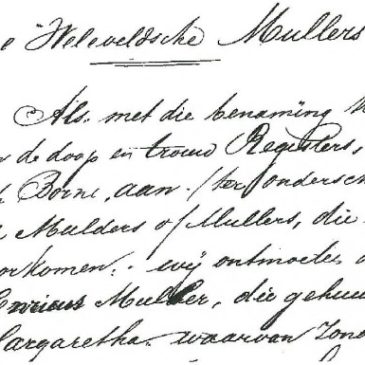 e "Weleveldsche Mullers
Als met die benaming W
de doop en trouw Registers,
Borne, aan. /ter ondersch
Mulders of Mullers, die
orkomen. wij ontmoeten
Enricus Mulder, die gehuw
Margaretha. waarvan Zond